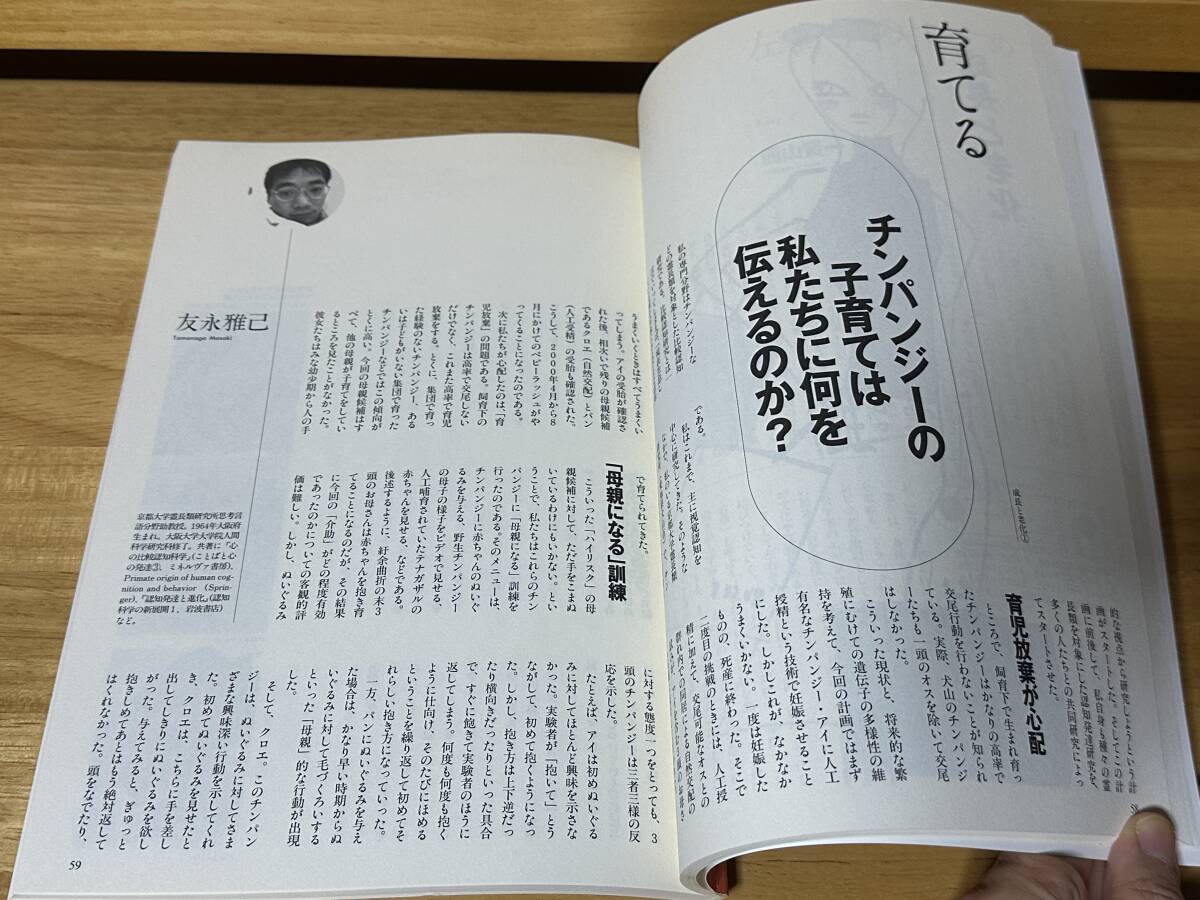 育てる
チンパンジーの
子育ては
私たちに何を
伝えるのか?
成長と老化①
私の専門分野はチンパンジーな
どの霊長類を対象とした比較認知
である。
私はこれまで、主に視覚認知を
中心に研究してきた。そのような
的な視点から研究しようという計
画がスタートした。そしてこの計
画に前後して、私自身も種々の霊
長類を対象にした認知発達研究を、
多くの人たちとの共同研究によっ
てスタートさせた。
育児放棄が心配
ところで、飼育下で生まれ育っ
たチンパンジーはかなりの高率で
交尾行動を行わないことが知られ
ている。実際、犬山のチンパンジ
ーたちも一頭のオスを除いて交尾
はしなかった。
こういった現状と、将来的な繁
殖にむけての遺伝子の多様性の維
持を考えて、今回の計画ではまず
有名なチンパンジー・アイに人工
授精という技術で妊娠させること
にした。しかしこれが、なかなか
うまくいかない。一度は妊娠した
ものの、死産に終わった。そこで
二度目の挑戦のときには、人工授
精に加えて、交尾可能なオスとの
群れ内での同居による自然交配の
58
友永雅己
Tomonaga Masaki
京都大学霊長類研究所思考言
語分野助教授。1964年大阪府
生まれ。大阪大学大学院人間
科学研究科修了。共著に『心
の比較認知科学』(ことばと心
の発達③、ミネルヴァ書房)、
Primate origin of human cog-
nition and behavior (Sprin-
ger)、『認知発達と進化』(認知
科学の新展開1、岩波書店)
など。
うまくいくときはすべてうまくい
ってしまう。アイの受胎が確認さ
れた後、相次いで残りの母親候補
であるクロエ(自然交配)とパン
(人工受精)の受胎も確認された。
こうして、2000年4月から8
月にかけてのベビーラッシュがや
ってくることになったのである。
次に私たちが心配したのは、「育
児放棄」の問題である。飼育下の
チンパンジーは高率で交尾しない
だけでなく、これまた高率で育児
放棄をする。とくに、集団で育っ
た経験のないチンパンジー、ある
いは子どもがいない集団で育った
チンパンジーなどではこの傾向が
とくに高い。今回の母親候補はす
べて、他の母親が子育てをしてい
るところを見たことがなかった。
彼女たちはみな幼少期から人の手
で育てられてきた。
「母親になる」訓練
こういった「ハイリスク」の母
親候補に対して、ただ手をこまぬ
いているわけにもいかない。とい
うことで、私たちはこれらのチン
パンジーに「母親になる」訓練を
行ったのである。そのメニューは、
チンパンジーに赤ちゃんのぬいぐ
るみを与える、野生チンパンジー
の母子の様子をビデオで見せる、
人工哺育されていたテナガザルの
赤ちゃんを見せる、などである。
後述するように、紆余曲折の末3
頭のお母さんは赤ちゃんを抱き育
てることになるのだが、その結果
に今回の「介助」がどの程度有効
であったのかについての客観的評
価は難しい。しかし、ぬいぐるみ
に対する態度一つをとっても、3
頭のチンパンジーは三者三様の反
応を示した。
たとえば、アイは初めぬいぐる
みに対してほとんど興味を示さな
かった。実験者が「抱いて」とう
ながして、初めて抱くようになっ
た。しかし、抱き方は上下逆だっ
たり横向きだったりといった具合
で、すぐに飽きて実験者のほうに
返してしまう。何度も何度も抱く
ように仕向け、そのたびにほめる
ということを繰り返して初めてそ
れらしい抱き方になっていった。
一方、パンにぬいぐるみを与え
た場合は、かなり早い時期からぬ
いぐるみに対して毛づくろいする
といった「母親」的な行動が出現
した。
そして、クロエ。このチンパン
ジーは、ぬいぐるみに対してさま
ざまな興味深い行動を示してくれ
た。初めてぬいぐるみを見せたと
き、クロエは、こちらに手を差し
出してしきりにぬいぐるみを欲し
がった。与えてみると、ぎゅっと
抱きしめてあとはもう絶対返して
はくれなかった。頭をなでたり、
59